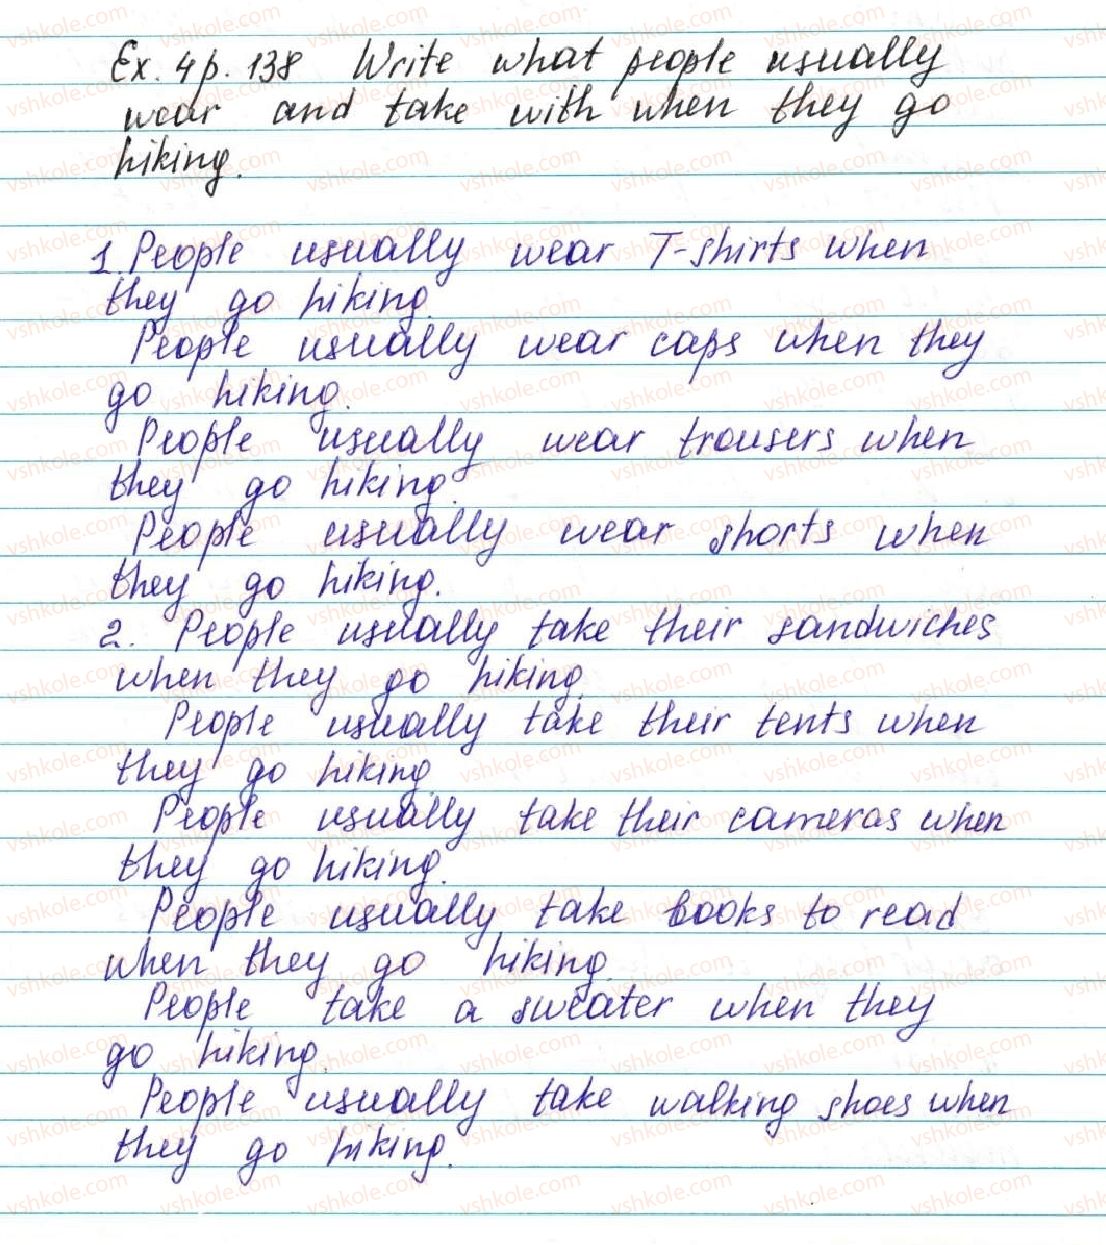 Ex. 4 p. 138 Write what people usually
wear and take with when they go
hiking.
1. People usually wear T-shirts when
they go hiking.
People usually wear caps when they
go hiking.
People usually wear trousers when
they go hiking.
People usually wear shorts when
they go hiking.
2. People usually take their sandwiches
when they go hiking.
People usually take their tents when
they go hiking.
People usually take their cameras when
they go hiking.
People usually take books to read
when they go hiking.
People take a sweater when they
go hiking.
People usually take walking shoes when
they go hiking.